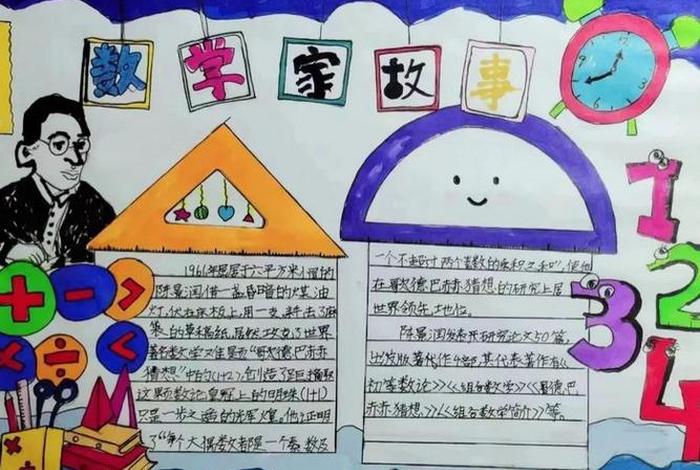 数学家故事
1966年屈居于六平方米小屋的
陈景润借一盏昏暗的煤油
灯,伏在床板上,用一支笔,耗去了6麻
袋的草稿纸,居然攻克了世界
著名数学难题"哥德巴赫
猜想"中的(1+2),创造了距摘取
这颗数论皇冠上的明珠(1+1)
只是一步之遥的光辉煌。他证明
了"每个大偶数都是一个素数及
一个不超过两个素数的乘积之和",使他
在哥德巴赫猜想的研究上居
世界领先地位。
陈景润发表研究论文50篇,
出版著作4部,其代表著作有《
初等数论》《组合数学》《哥德巴
赫猜想》《组合数学简介》等。
+ - >
× ÷ <
12
3
6
9
1
2
3
4